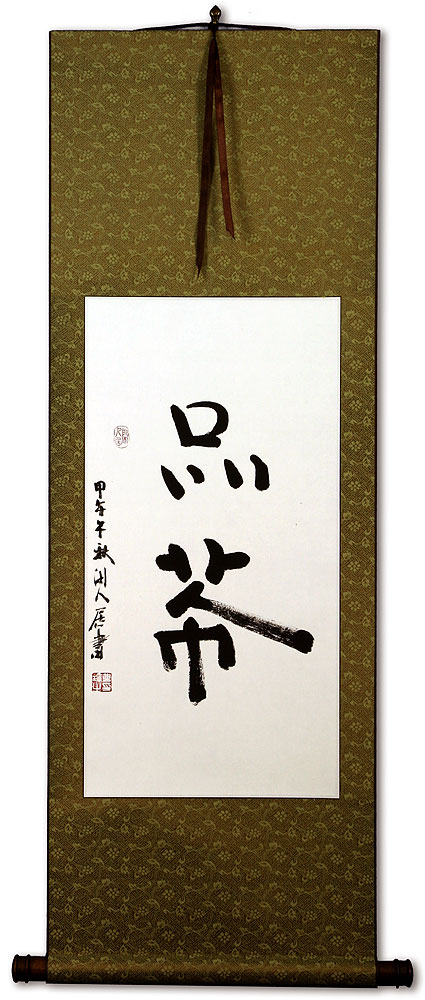 品茶
甲午年秋閑人居書